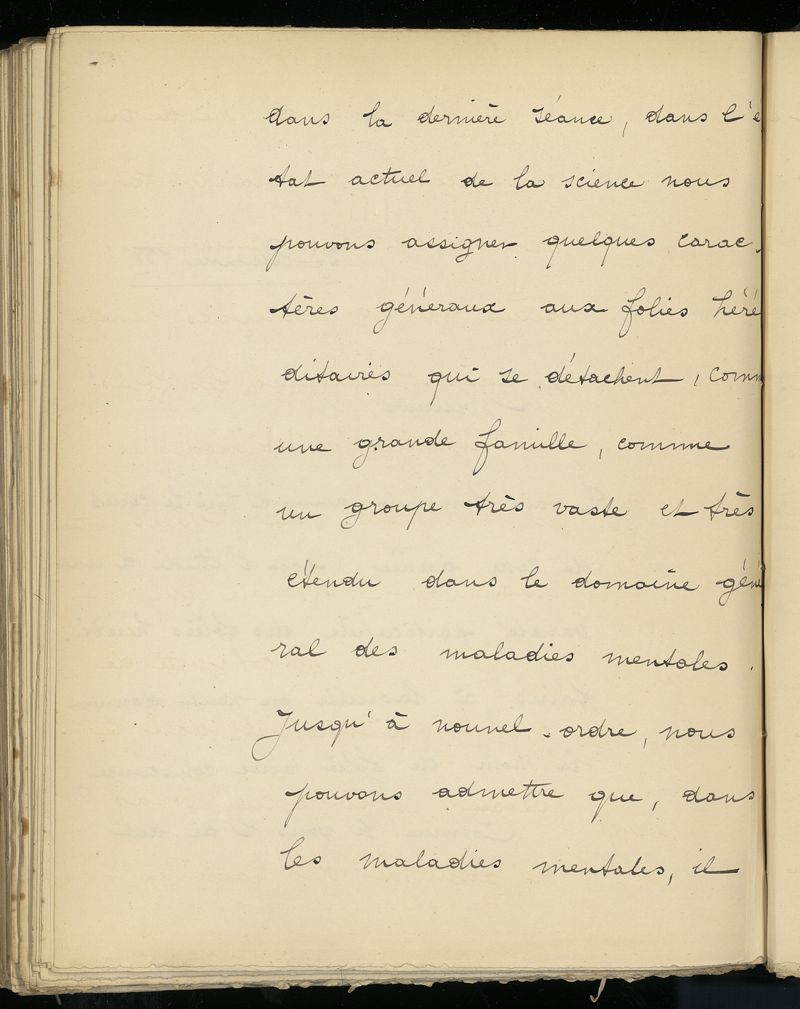 dans la dernière séance, dans l'é
tat actuel de la science nous
pouvons assigner quelques carac-
tères généraux aux folies héré
ditaires qui se détachent, comm
une grande famille, comme
un groupe très vaste et très
étendu dans le domaine géné
ral des maladies mentales.
Jusqu'à nouvel-ordre, nous
pouvons admettre que, dans
les maladies mentales, il